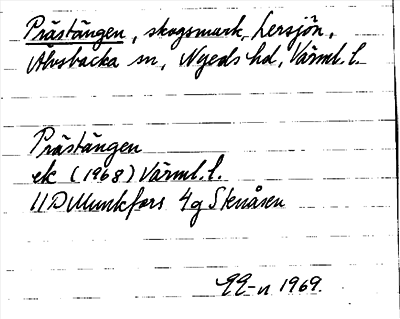 Prästängen, skogsmark, Lersjön,
Alvsbacka sn, Nyeds hd, Värml. l.
Prästängen
ek (1968) Värml. l.
11D Munkfors 4g Stenåsen
1969.